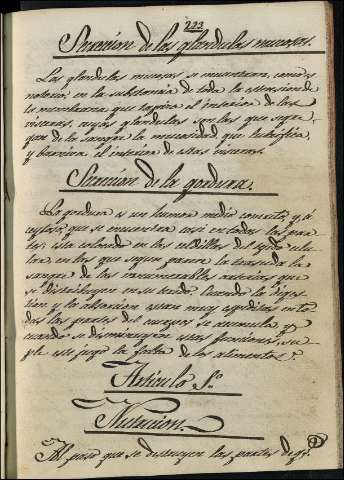 223
Secrecion de las glandulas mucosas.
Las glandulas mucosas se encuentran, como es
notorio, en la substancia de toda la estension de
la membrana que tapiza el interior de las
visceras, cuyas glandulas son las que segre-
gan de la sangre la mucosidad que lubrifica,
y barniza el interior de estas visceras.
Secrecion de la gordura.
La gordura es un humor medio concreto, y a-
ceytoso que se encuentra casi en todas las par-
tes; esta colocado en las celdillas del tejido celu-
lar, en las que segun parece la trasuda la
sangre de las innumerables arterias que
se distribuyen en su tejido. Cuando la diges-
tion y la absorcion estan muy espeditas en to-
das las partes del cuerpo se acumula, y
cuando se disminuyen estas funciones, su-
ple este jugo la falta de los alimentos.
Articulo 8º
Nutricion.
Al paso que se destruyen las partes de q.e